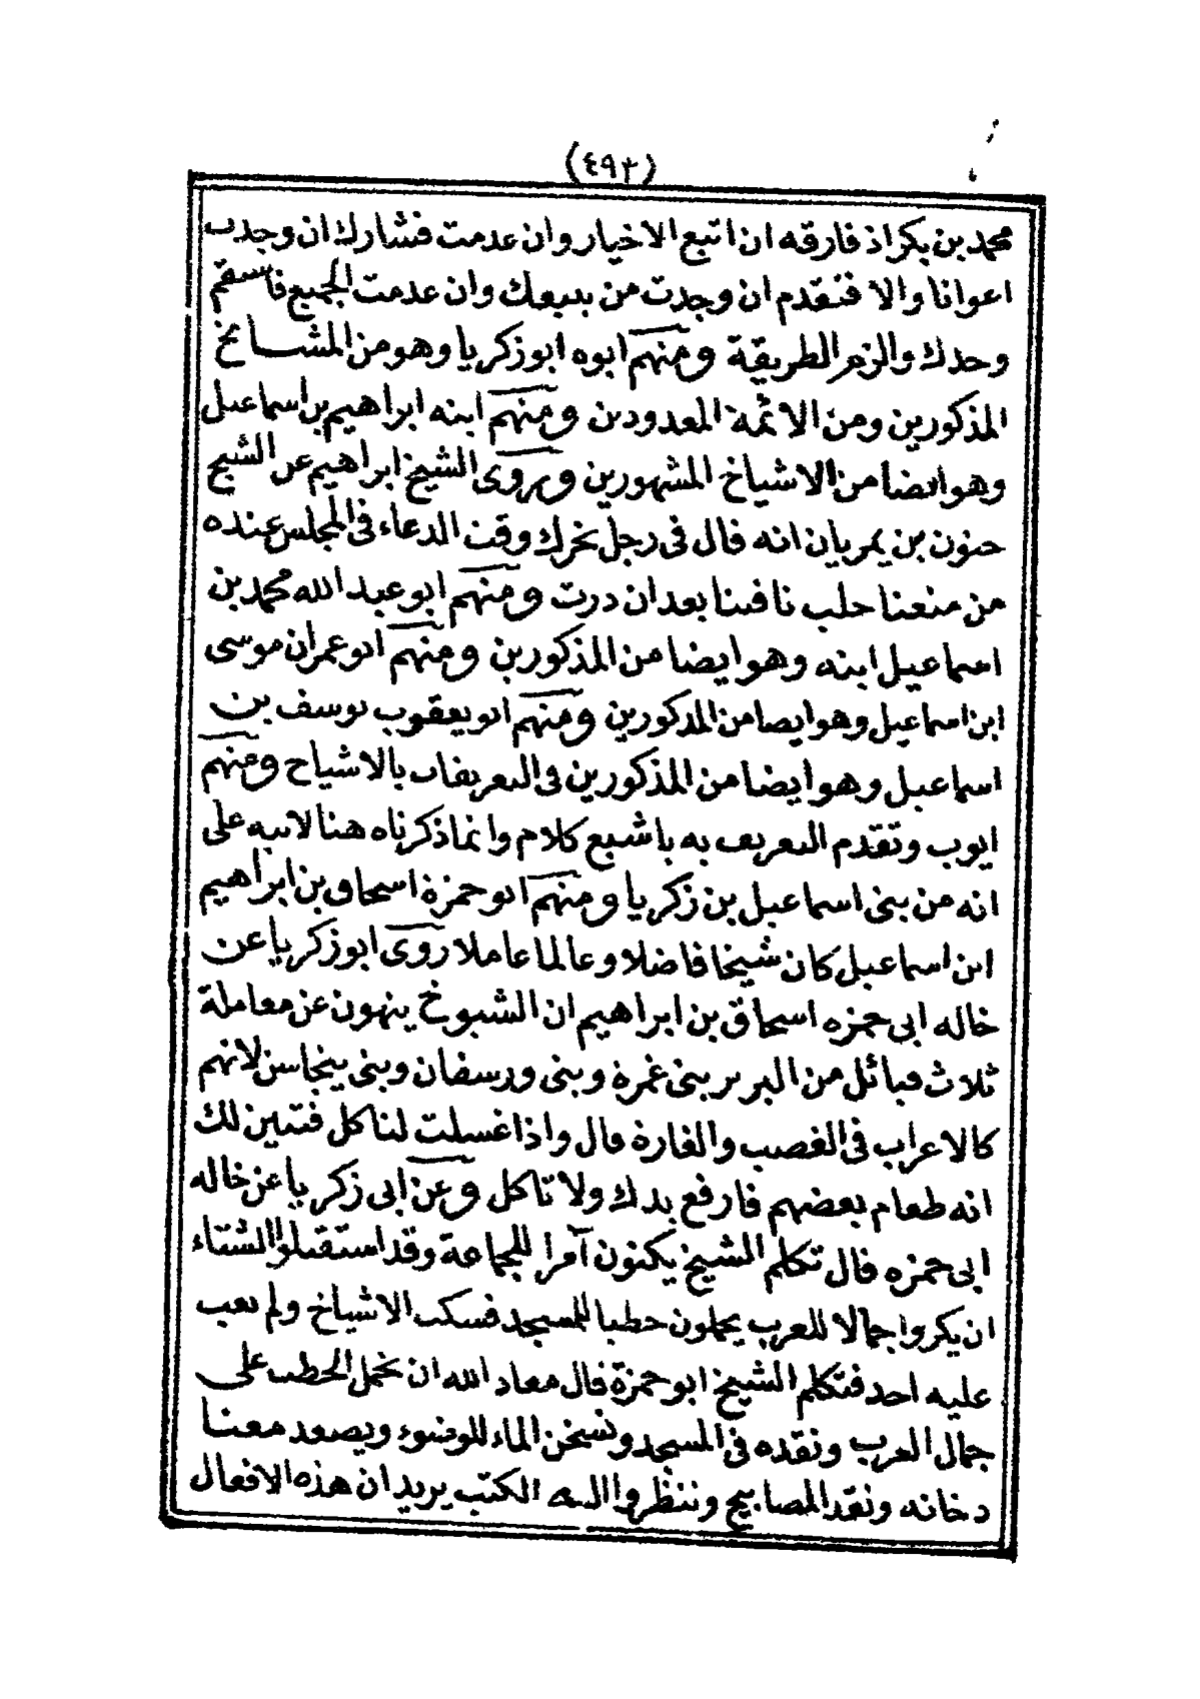 (٤٩٣)
محمد بن بكر اذ فارقه ان اتبع الاخيار وان عدمت فشارك ان وجدت
اعوانا والا فتقدم ان وجدت من يتبعك وان عدمت الجميع فاستقم
وحدك والزم الطريقة ومنهم ابوه ابو زكريا وهو من المشايخ
المذكورين ومن الائمة المعدودين ومنهم ابنه ابراهيم بن اسماعيل
وهو ايضا من الاشياخ المشهورين ويروى الشيخ ابراهيم عن الشيخ
حنون بن يمريان انه قال فى رجل تحرك وقت الدعاء فى المجلس عنده
من منعنا حلب ناقتنا بعد ان درت ومنهم ابو عبد الله محمد بن
اسماعيل ابنه وهو ايضا من المذكورين ومنهم ابو عمران موسى
ابن اسماعيل وهو ايضا من المذكورين ومنهم ابو يعقوب يوسف بن
اسماعيل وهو ايضا من المذكورين فى التعريفات بالاشياخ ومنهم
ايوب وتقدم التعريف به باشبع كلام وانما ذكرناه هنا لانبه على
انه من بنى اسماعيل بن زكريا ومنهم ابو حمزة اسحاق بن ابراهيم
ابن اسماعيل كان شيخا فاضلا وعالما عاملا روى ابو زكريا عن
خاله ابى حمزه اسحاق بن ابراهيم ان الشيوخ ينهون عن معاملة
ثلاث قبائل من البربر بنى غمرة وبنى ورسفان وبنى ينجاسن لانهم
كالاعراب فى الغصب والغارة قال واذا غسلت لناكل فتبين لك
انه طعام بعضهم فارفع يدك ولا تاكل وعن ابى زكريا عن خاله
ابى حمزه قال تكلم الشيخ يكنون آمرا للجماعة وقد استقبلوا الشتاء
ان يكروا جمالا للعرب يحملون حطبا للمسجد فسكت الاشياخ ولم يعب
عليه احد فتكلم الشيخ ابو حمزة قال معاد الله ان نحمل الحطب على
جمال العرب ونقده فى المسجد ونسخن الماء للوضوء ويصعد معنا
دخانه ونقد المصابيح وننظروا اليه الكتب يريد ان هذه الافعال